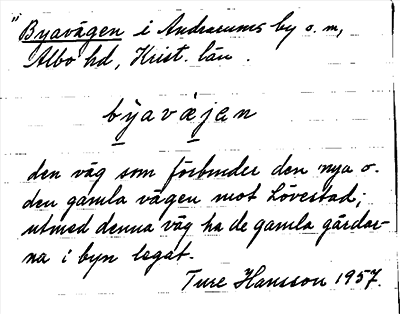 "Byavägen i Andrarums by o. m,
Albo hd, Krist. län.
byavæjan
den väg som förbinder den nya o.
den gamla vägen mot Lövestad;
utmed denna väg ha de gamla gårdar-
na i byn legat.
Ture Hansson 1957.